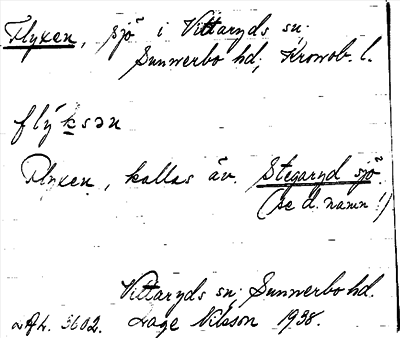 Flyxen, sjö i Vittaryds sn;
Sunnerbo hd; Kronob. l.
flýksən
Flyxen, kallas äv. Stegaryd sjö.
(se d. namn!)
Vittaryds sn; Sunnerbo hd.
LAL. 3602. Lage Nilsson 1938.